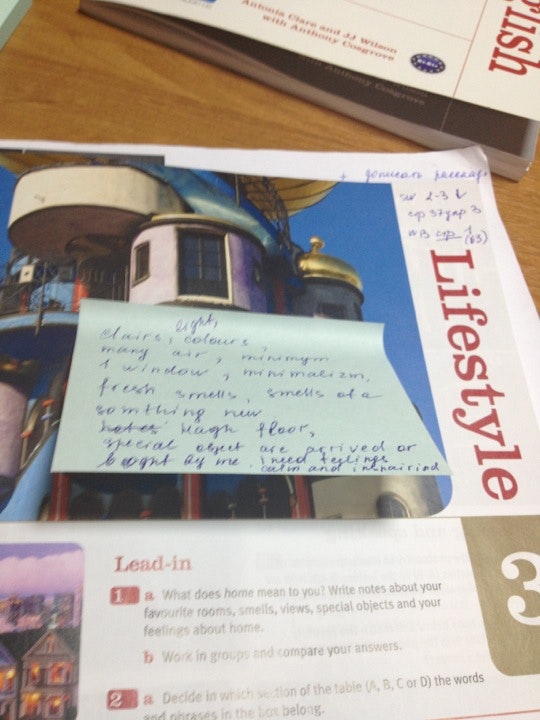 Antonia Clare and JJ Wilson
with Anthony Cosgrove
glish
with Anthony Cosgrove
+ дописать рассказ
стр 37 упр 3
WB стр 1
(63)
Lifestyle
light,
clairs, colours,
many air, minimym
1 window, minimalizm,
fresh smells, smells of a
somthing new
hotes heagh floor,
special object are arrived or
bought by me. i need feelings
calm and
Lead-in
1 a What does home mean to you? Write notes about your
favourite rooms, smells, views, special objects and your
feelings about home.
b Work in groups and compare your answers.
3
2 a Decide in which section of the table (A, B, C or D) the words
and phrases in the box belong.